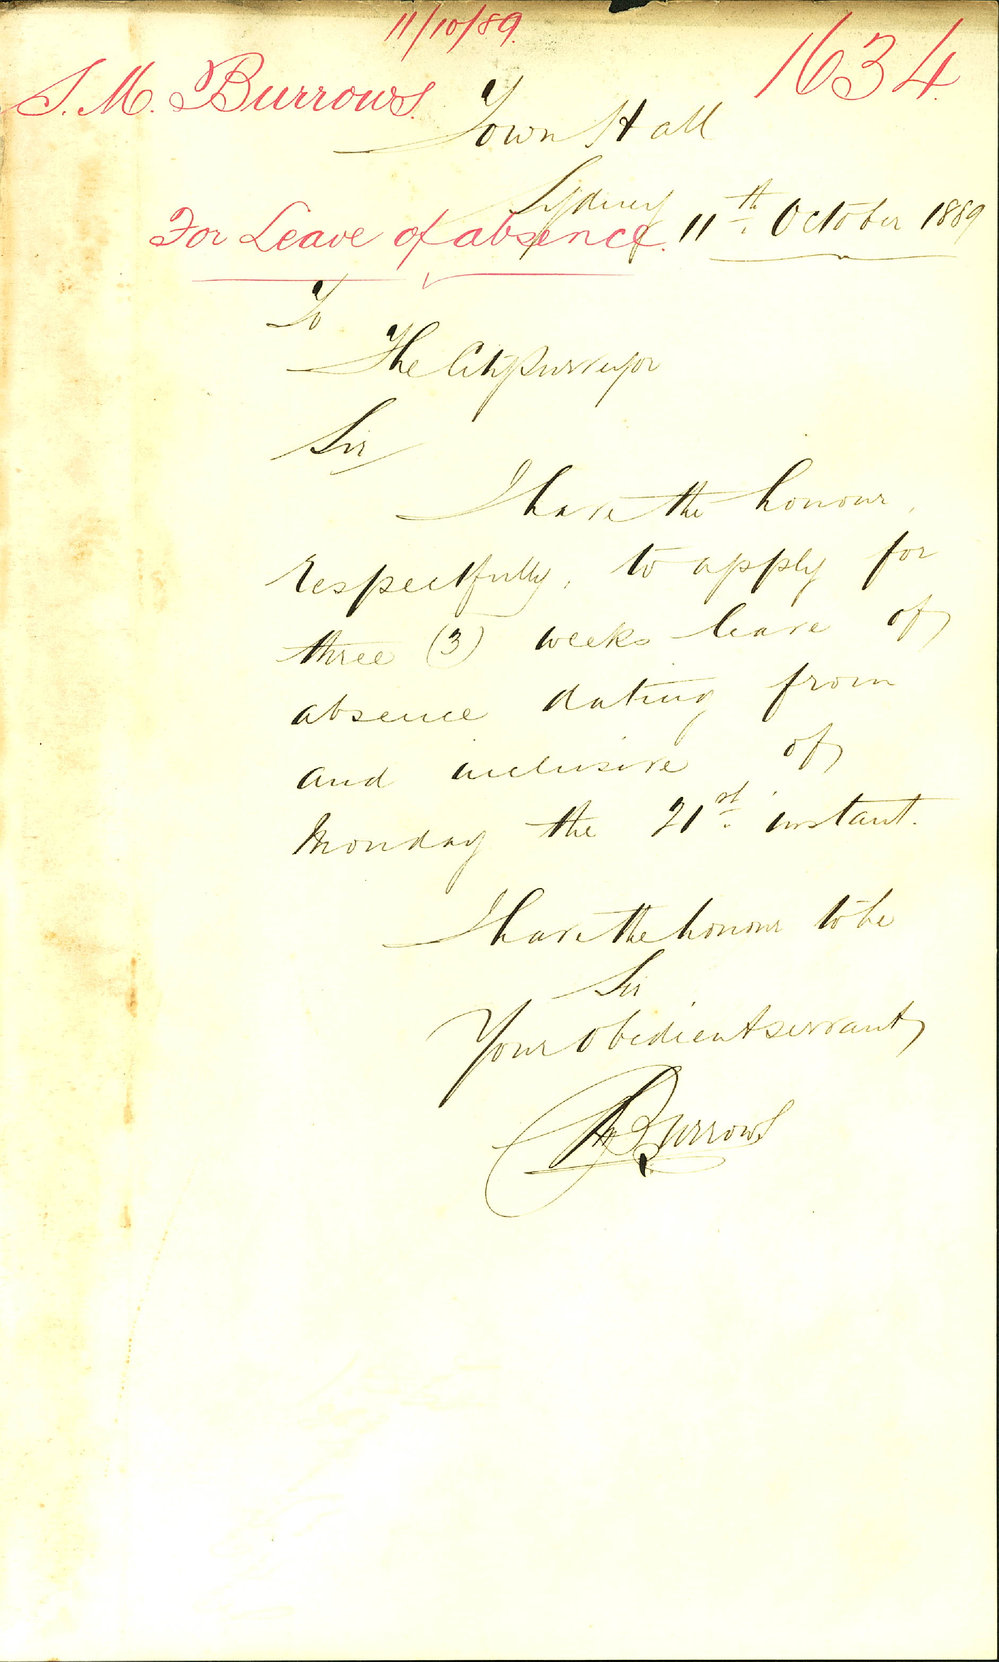 11/10/89.
1634.
S. M. Burrows.
Town Hall
Sydney
For Leave of absence. 11th October 1889
To
The City Surveyor
Sir
I have the honour,
respectfully, to apply for
three (3) weeks leave of
absence dating from
and inclusive of
Monday the 21st instant.
I have the honour to be
Sir
Your obedient servant
SMBurrows